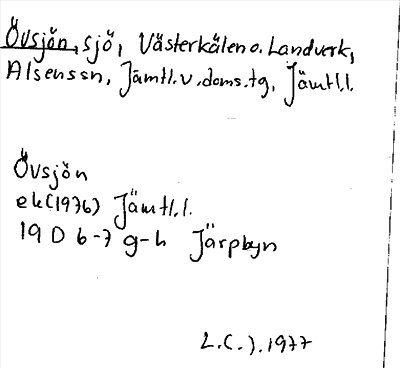 Övsjön, sjö, Västerkälen o. Landverk,
Alsenssn, Jämtl.v.doms.tg, Jämtl.l.
Övsjön
ek (1976) Jämtl.l.
19 D 6-7 g-h Järpbyn
L.C.J. 1977